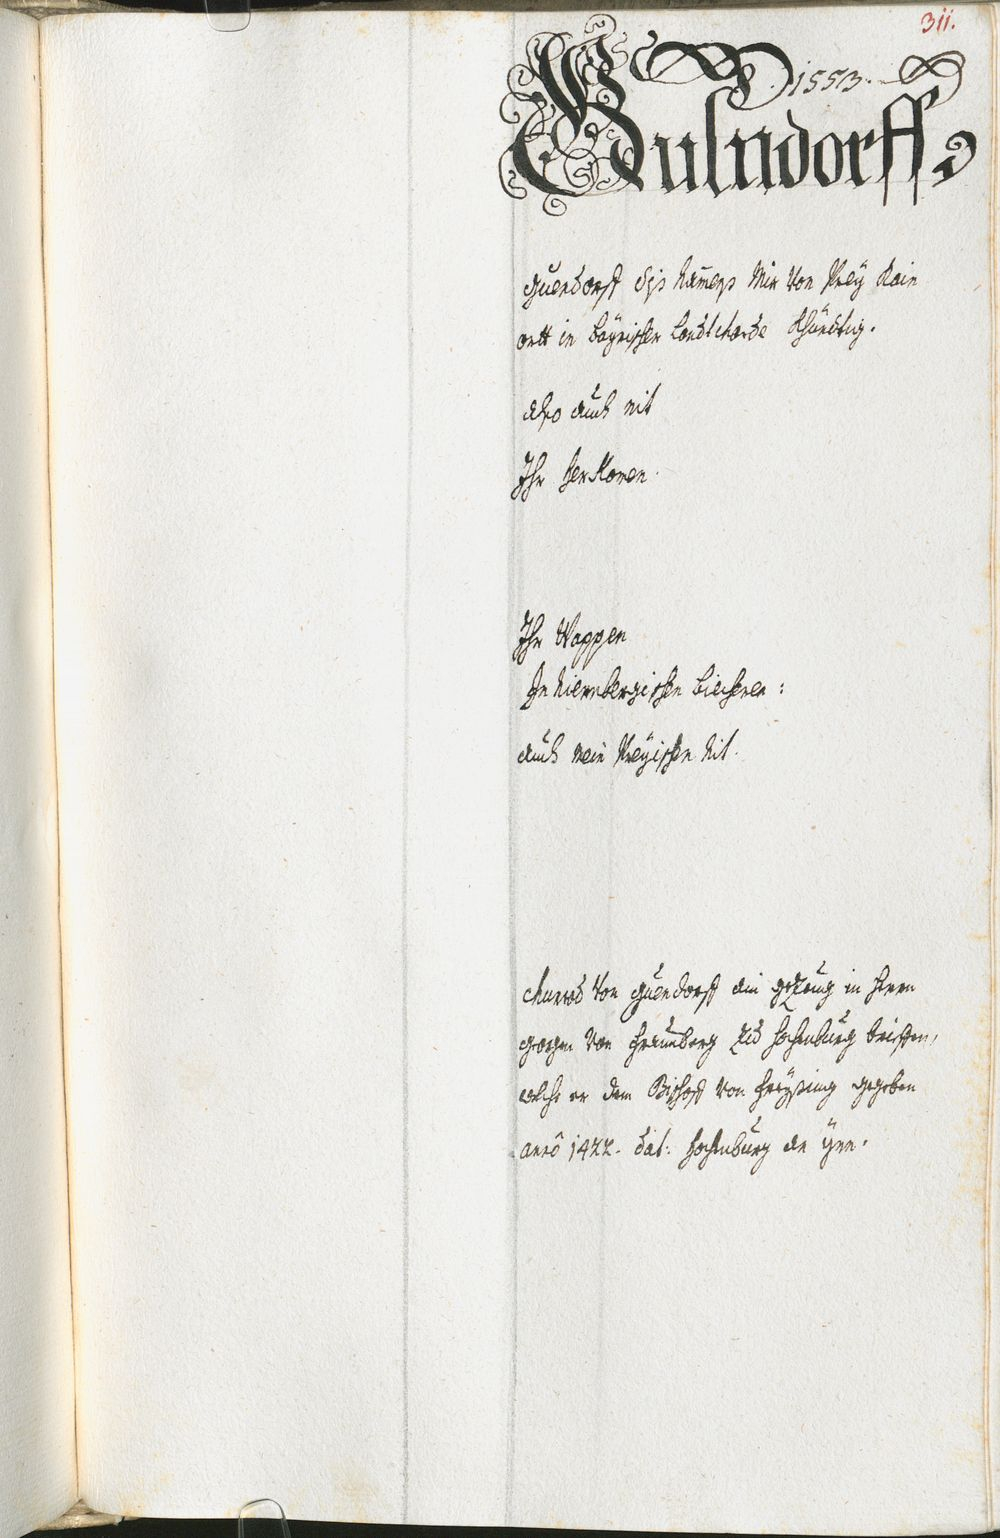 311.
1553.
Gulndorff
Guendorff diß Namens Mir Von Prey kain
ortt in bayrischer Landtcharde khündtig.
also auch nit
Ihr herkomen.
Ihr Wappen
In Niernbergischen biechern:
auch mein Preyischen Nit.
Chunrad Von Guendorff ain gezeug in herrn
Georgen Von Fraunberg zu Hochenburg brieffen,
welche er dem Bischoff Von Freysing gegeben
anno 1422. dat: Hochenburg am Yhn.